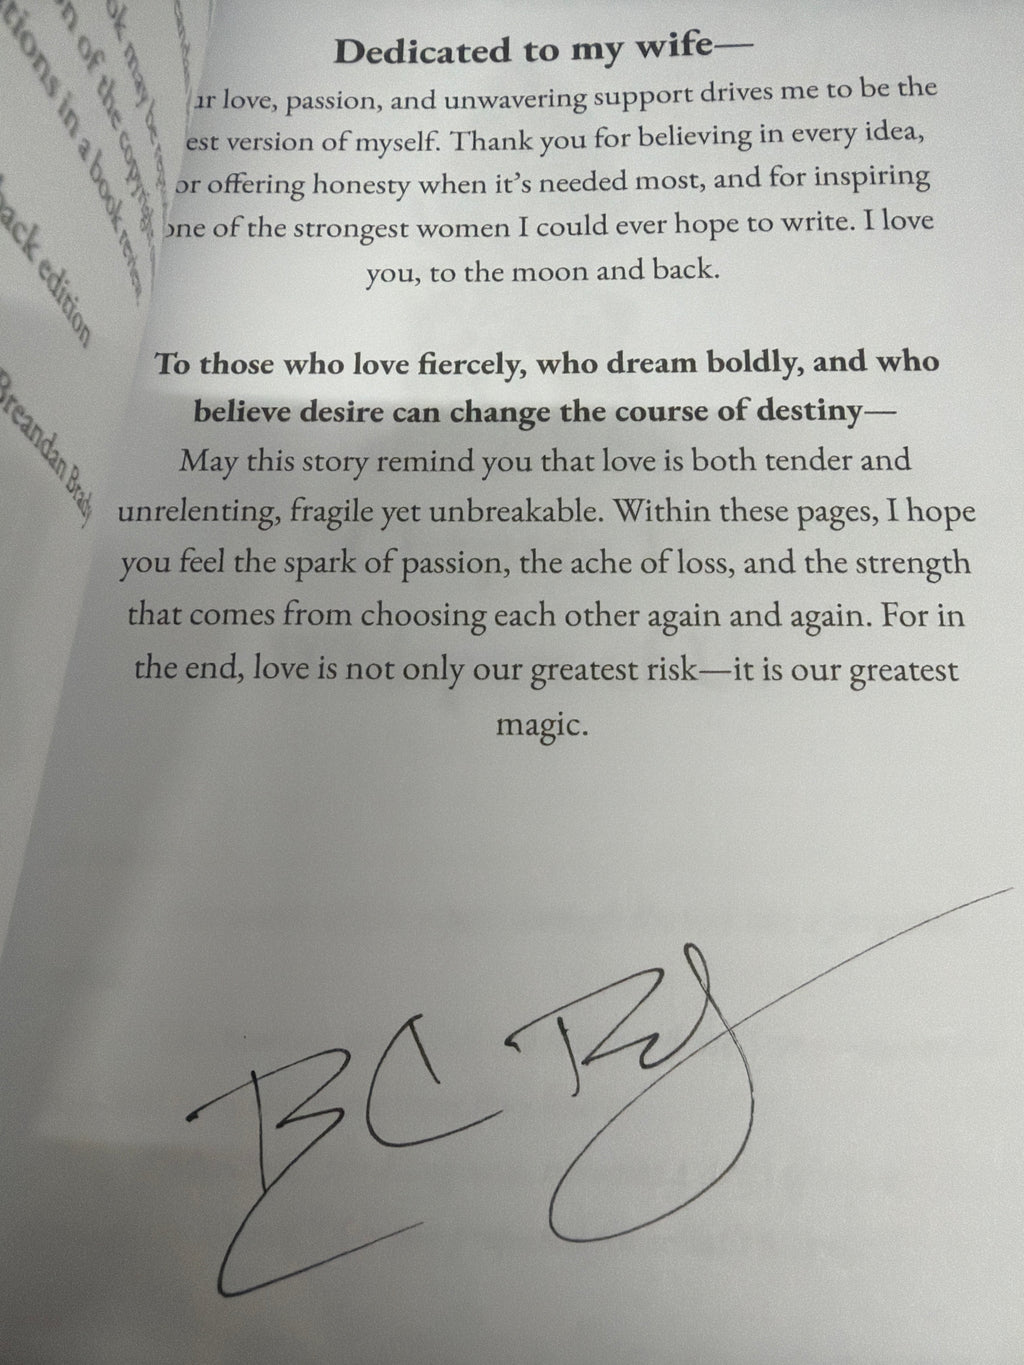 tions in a book review.
n of the copyright
ok may be
back edition
Breandan Brady
Dedicated to my wife—
ur love, passion, and unwavering support drives me to be the
est version of myself. Thank you for believing in every idea,
or offering honesty when it's needed most, and for inspiring
one of the strongest women I could ever hope to write. I love
you, to the moon and back.
To those who love fiercely, who dream boldly, and who
believe desire can change the course of destiny—
May this story remind you that love is both tender and
unrelenting, fragile yet unbreakable. Within these pages, I hope
you feel the spark of passion, the ache of loss, and the strength
that comes from choosing each other again and again. For in
the end, love is not only our greatest risk—it is our greatest
magic.